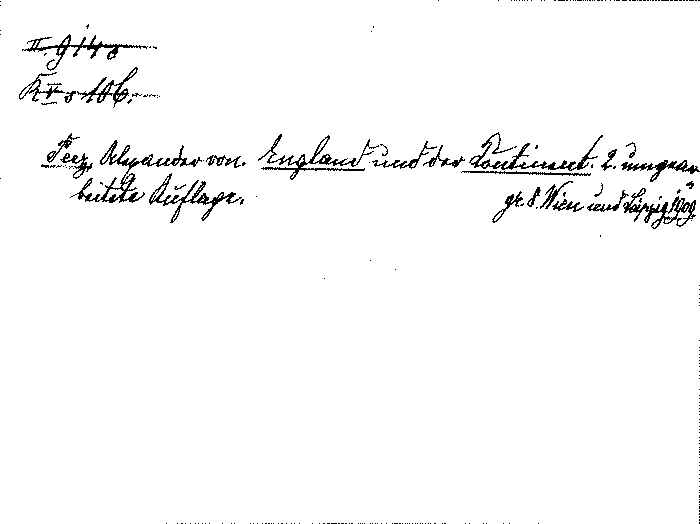 II. g 148
K V s 106.
Peez, Alexander von. England und der Continent. 2. umgear
beitete Auflage.
gr. 8. Wien und Leipzig 1909